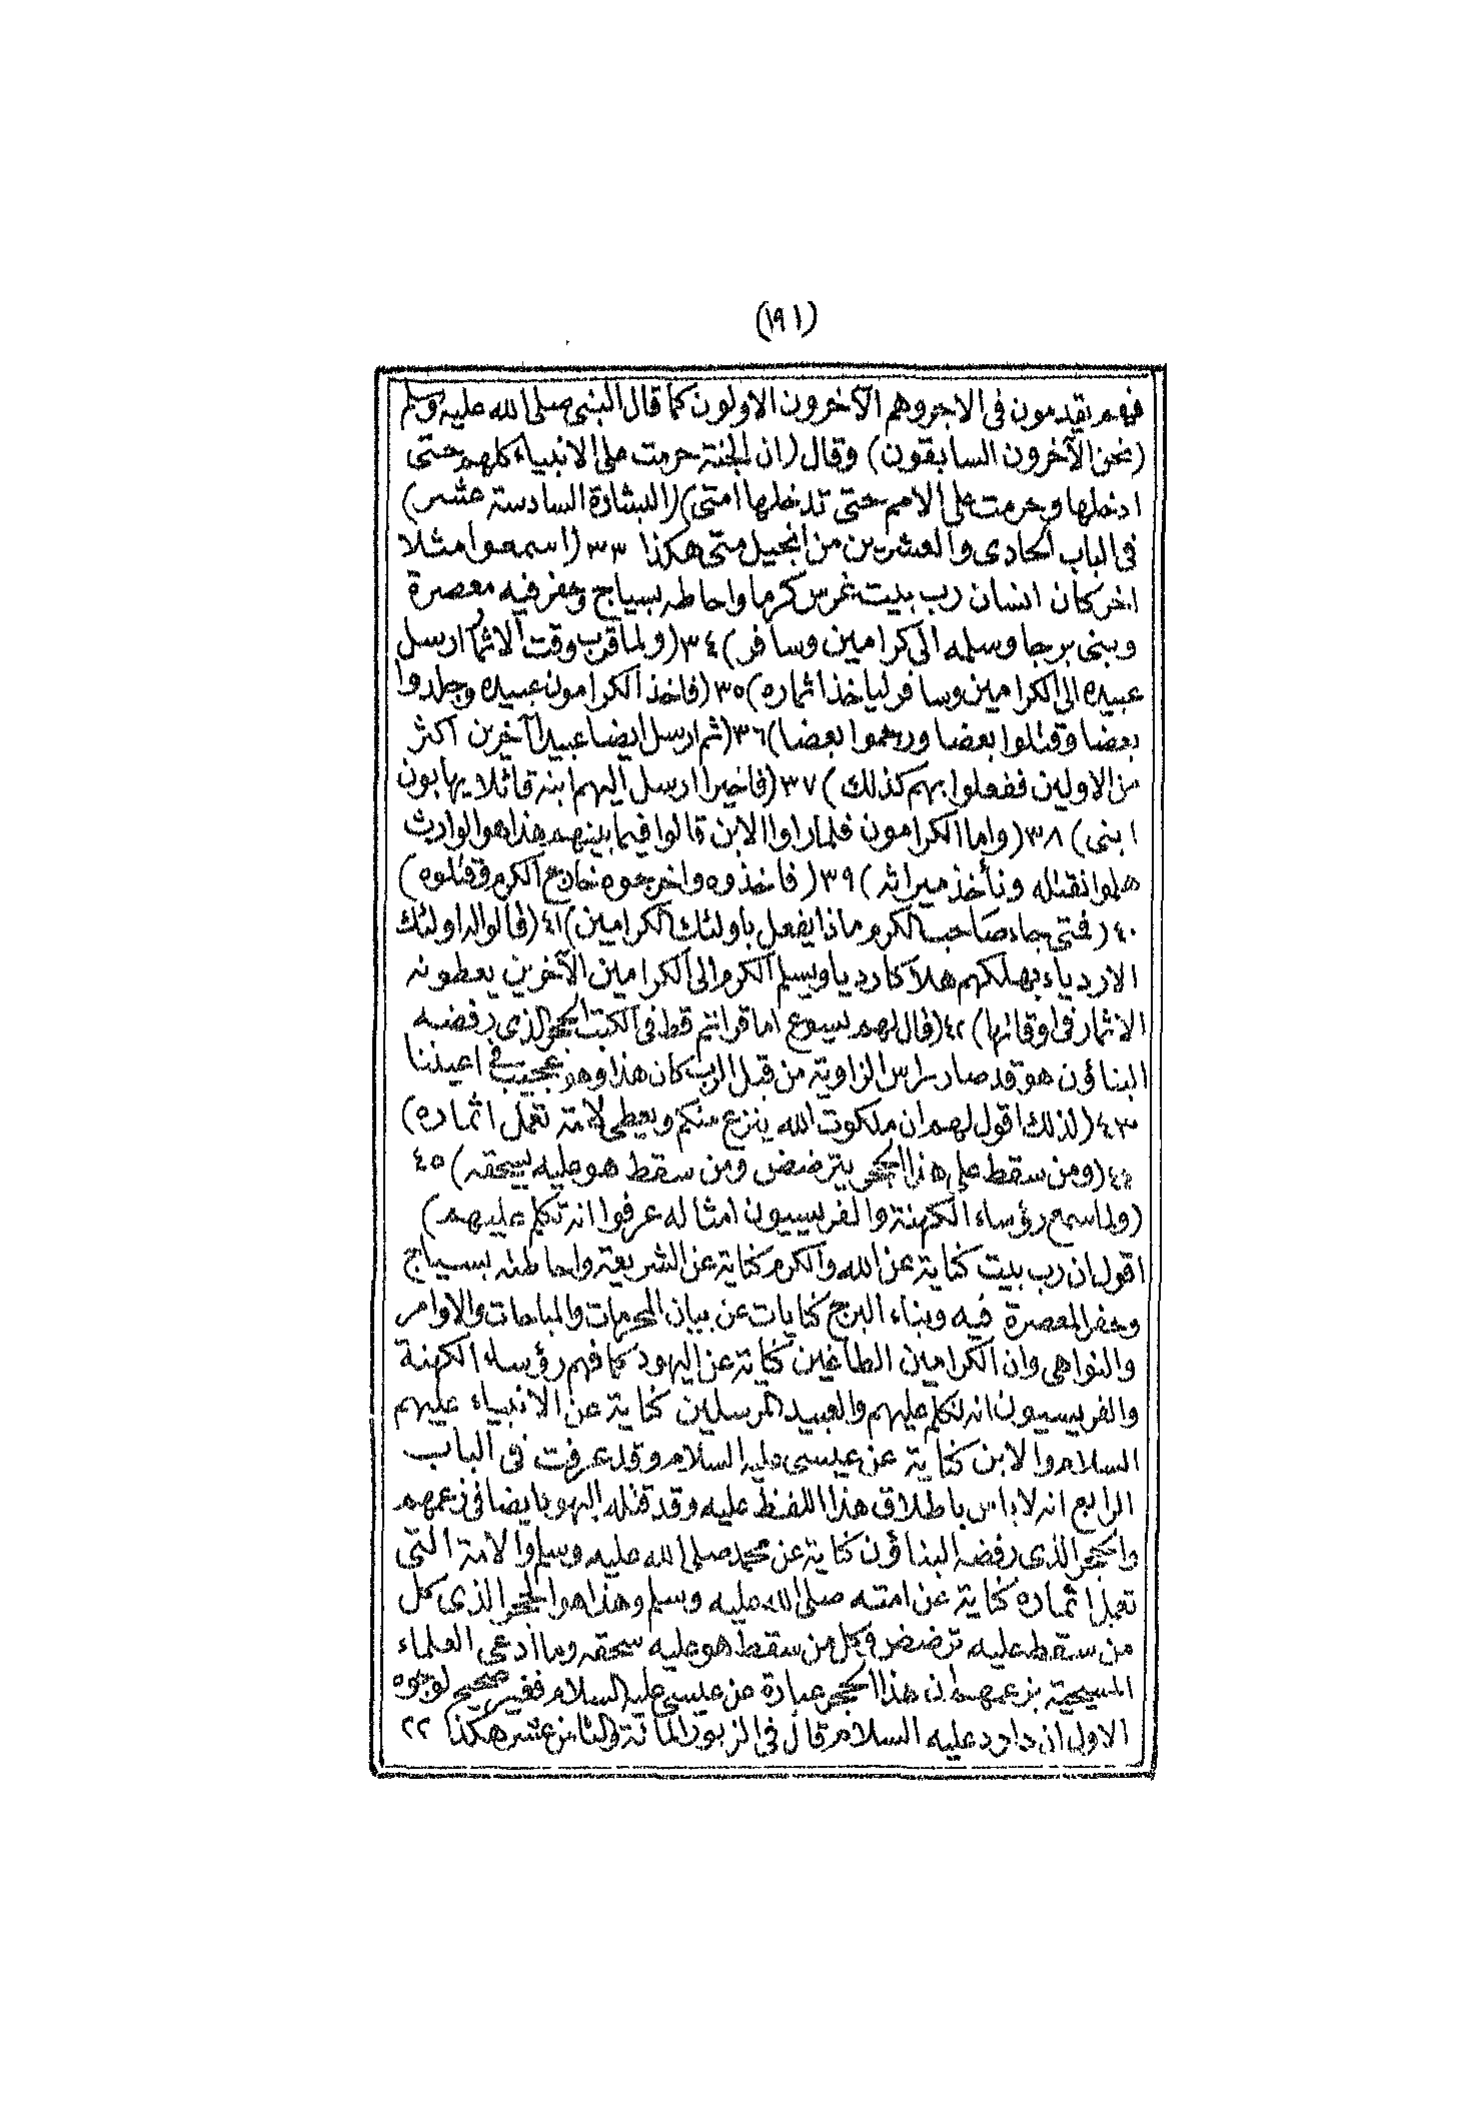 (١٩١)
فهم يقدمون فى الاجر وهم الآخرون الاولون كما قال النبى صلى الله عليه وسلم
(نحن الآخرون السابقون) وقال (ان الجنة حرمت على الانبياء كلهم حتى
ادخلها وحرمت على الامم حتى تدخلها امتى) (البشارة السادسة عشر)
فى الباب الحادى والعشرين من انجيل متى هكذا ٣٣ (اسمعوا مثلا
اخر كان انسان رب بيت غرس كرما واحاطه بسياج وحفر فيه معصرة
وبنى برجا وسلمه الى كرامين وسافر) ٣٤ (ولما قرب وقت الاثمار ارسل
عبيده الى الكرامين وسافر لياخذ اثماره) ٣٥ (فاخذ الكرامون عبيده وجلدوا
بعضا وقتلوا بعضا ورجموا بعضا) ٣٦ (ثم ارسل ايضا عبيدا آخرين اكثر
من الاولين ففعلوا بهم كذلك) ٣٧ (فاخيرا ارسل اليهم ابنه قائلا يهابون
ابنى) ٣٨ (واما الكرامون فلما راوا الابن قالوا فيما بينهم هذا هو الوارث
هلموا نقتله ونأخذ ميراثه) ٣٩ (فاخذوه واخرجوه خارج الكرم وقتلوه)
٤٠ (فمتى جاء صاحب الكرم ماذا يفعل باولئك الكرامين) ٤١ (قالوا له اولئك
الاردياء يهلكهم هلاكا رديا ويسلم الكرم الى الكرامين الآخرين يعطونه
الاثمار فى اوقاتها) ٤٢ (قال لهم يسوع اما قراتم قط فى الكتب الحجر الذى رفضه
البناؤن هو قد صار راس الزاوية من قبل الرب كان هذا وهو عجيب فى اعيننا
٤٣ (لذلك اقول لهم ان ملكوت الله ينزع منكم ويعطى لامة تعمل اثماره)
٤٤ (ومن سقط على هذا الحجر يترضض ومن سقط هو عليه يسحقه) ٤٥
(ولما سمع رؤساء الكهنة والفريسيون امثاله عرفوا انه تكلم عليهم)
اقول ان رب بيت كناية عن الله والكرم كناية عن الشريعة واحاطته بسياج
وحفر المعصرة فيه وبناء البرج كنايات عن بيان المحرمات والمباحات والاوامر
والنواهى وان الكرامين الطاغين كناية عن اليهود كما فهم رؤساء الكهنة
والفريسيون انه تكلم عليهم والعبيد المرسلين كناية عن الانبياء عليهم
السلام والابن كناية عن عيسى عليه السلام وقد عرفت فى الباب
الرابع انه لا باس باطلاق هذا اللفظ عليه وقد قتله اليهود ايضا فى زعمهم
والحجر الذى رفضه البناؤن كناية عن محمد صلى الله عليه وسلم والامة التى
تعمل اثماره كناية عن امته صلى الله عليه وسلم وهذا هو الحجر الذى كل
من سقط عليه ترضض وكل من سقط هو عليه سحقه وما ادعى العلماء
المسيحية بزعمهم ان هذا الحجر عبارة عن عيسى عليه السلام فغير صحيح لوجوه
الاول ان داود عليه السلام قال فى الزبور المائة والثامن عشر هكذا ٢٢